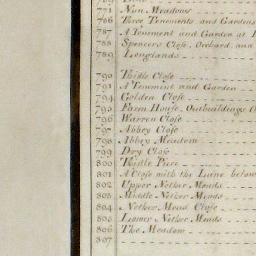 771 Nun Meadows
786 Three Tenements and Gardens
787 A Tenement and Garden at
788 Spencers Close, Orchard, and
789 Longlands
790 Thistle Close
791 A Tenement and Garden
794 Golden Close
795 Farm House, Outbuildings
796 Warren Close
797 Abbey Close
798 Abbey Meadow
799 Dry Close
800 Thistle Piece
801 A Close with the Lane below
802 Upper Nether Meads
803 Middle Nether Meads
804 Nether Mead Close
805 Lower Nether Meads
806 The Meadow
807